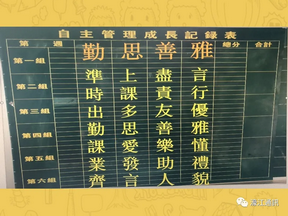 自主管理成長記錄表
第 週 勤 思 善 雅 總分 合計
第一組
第二組
第三組
第四組
第五組
第六組
準時出勤課業齊
上課多思愛發言
盡責友善樂助人
言行優雅懂禮貌